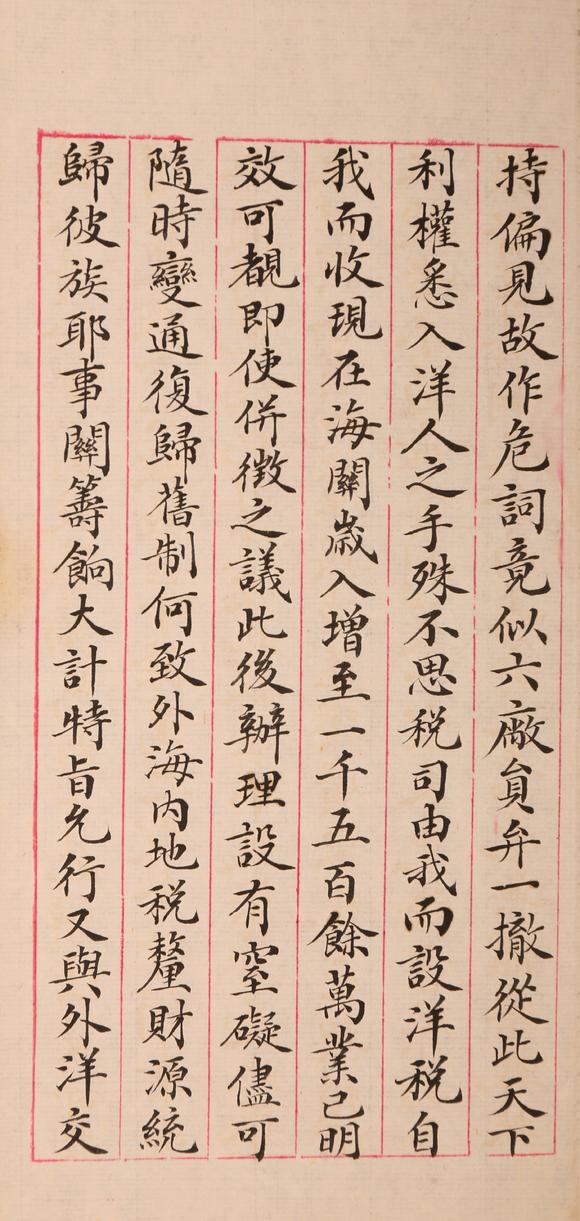 持偏見故作危詞竟似六廠員弁一撤從此天下
利權悉入洋人之手殊不思稅司由我而設洋稅自
我而收現在海關歲入增至一千五百餘萬業已明
效可覩即使併徵之議此後辦理設有窒礙儘可
隨時變通復歸舊制何致外海內地稅釐財源統
歸彼族耶事關籌餉大計特旨允行又與外洋交